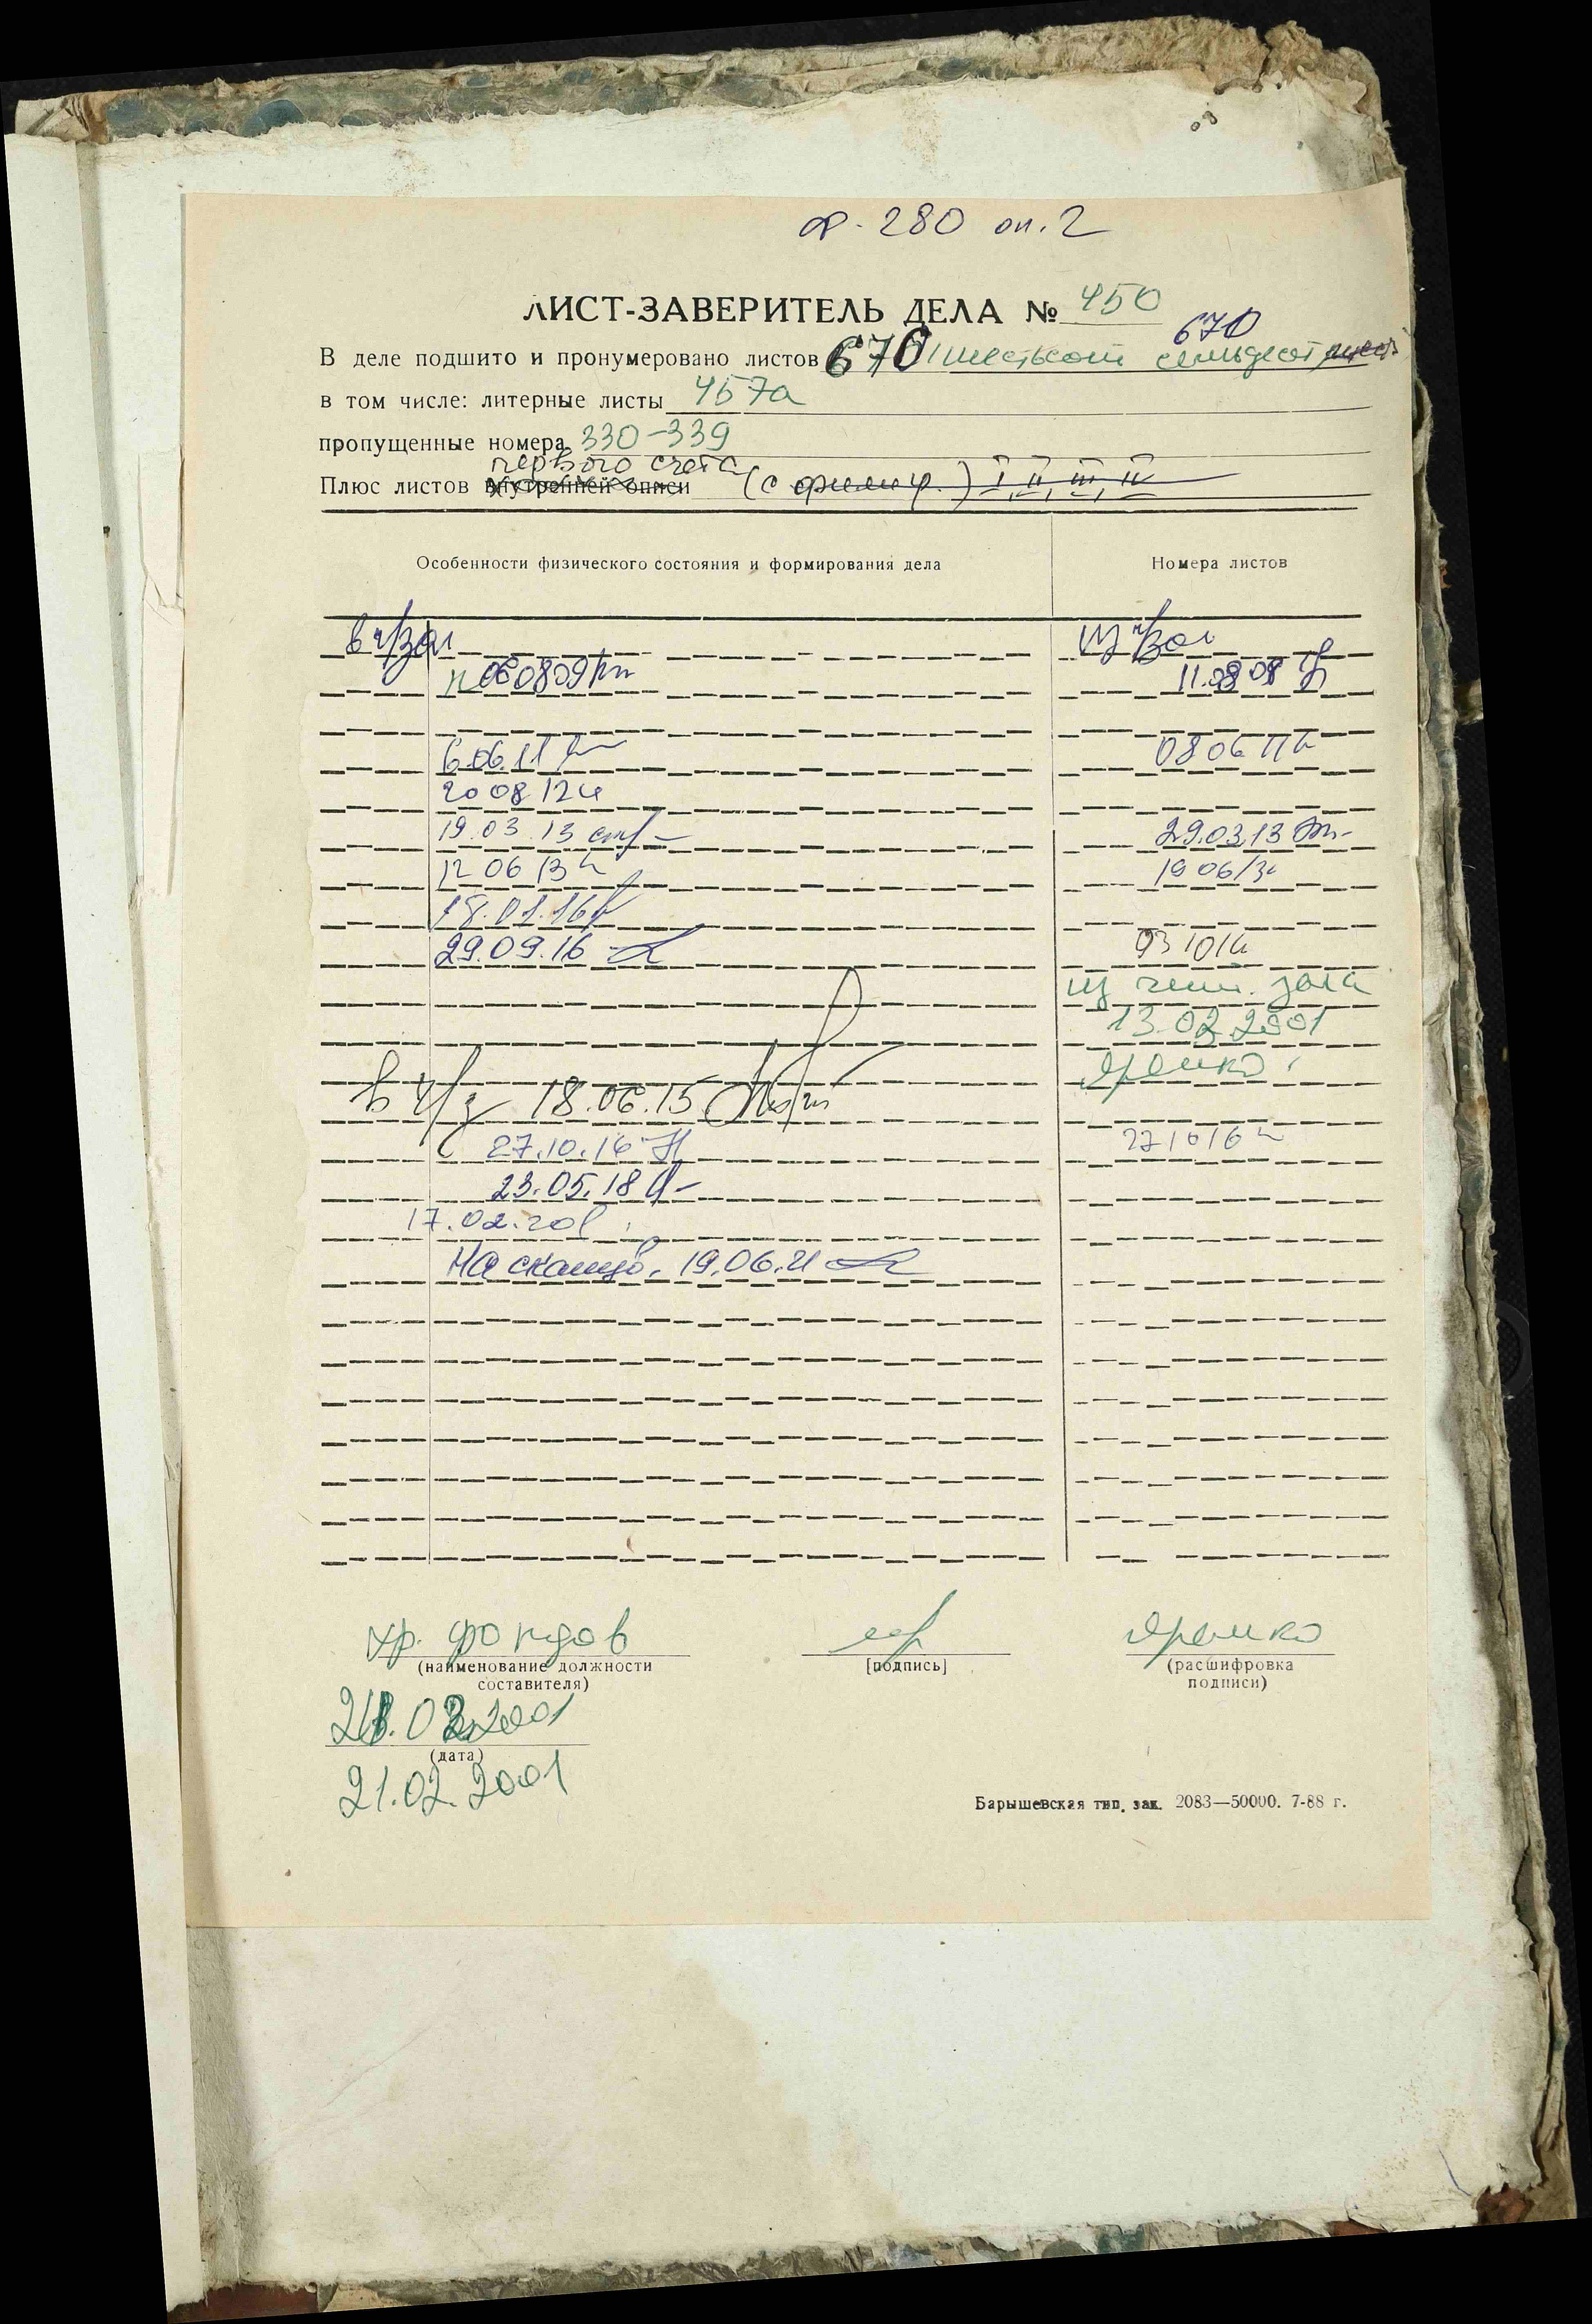 ф. 280 оп. 2
ЛИСТ-ЗАВЕРИТЕЛЬ ДЕЛА № 450
670
В деле подшито и пронумеровано листов 670 шестьсот семьдесят
в том числе: литерные листы 457а
пропущенные номера 330-339
первого счета
Плюс листов внутренней описи (с I, II, III, IV
Особенности физического состояния и формирования дела Номера листов
в ч/зал из ч/зал
060809 11.08.09
6.06.11 080611
20 08 12
19.03.13 29.03.13
12 06 13 190613
18.01.16
29.09.16
из чит. зала
13.02.2001
Яремко
в ч/з 18.06.15
27.10.16 271016
23.05.18
17.02.20
На сканир. 19.06.21
хр. фондов Яремко
(наименование должности [подпись] (расшифровка
составителя) подписи)
21.02.2001
(дата)
21.02.2001
Барышевская тип. зак. 2083—50000. 7-88 г.